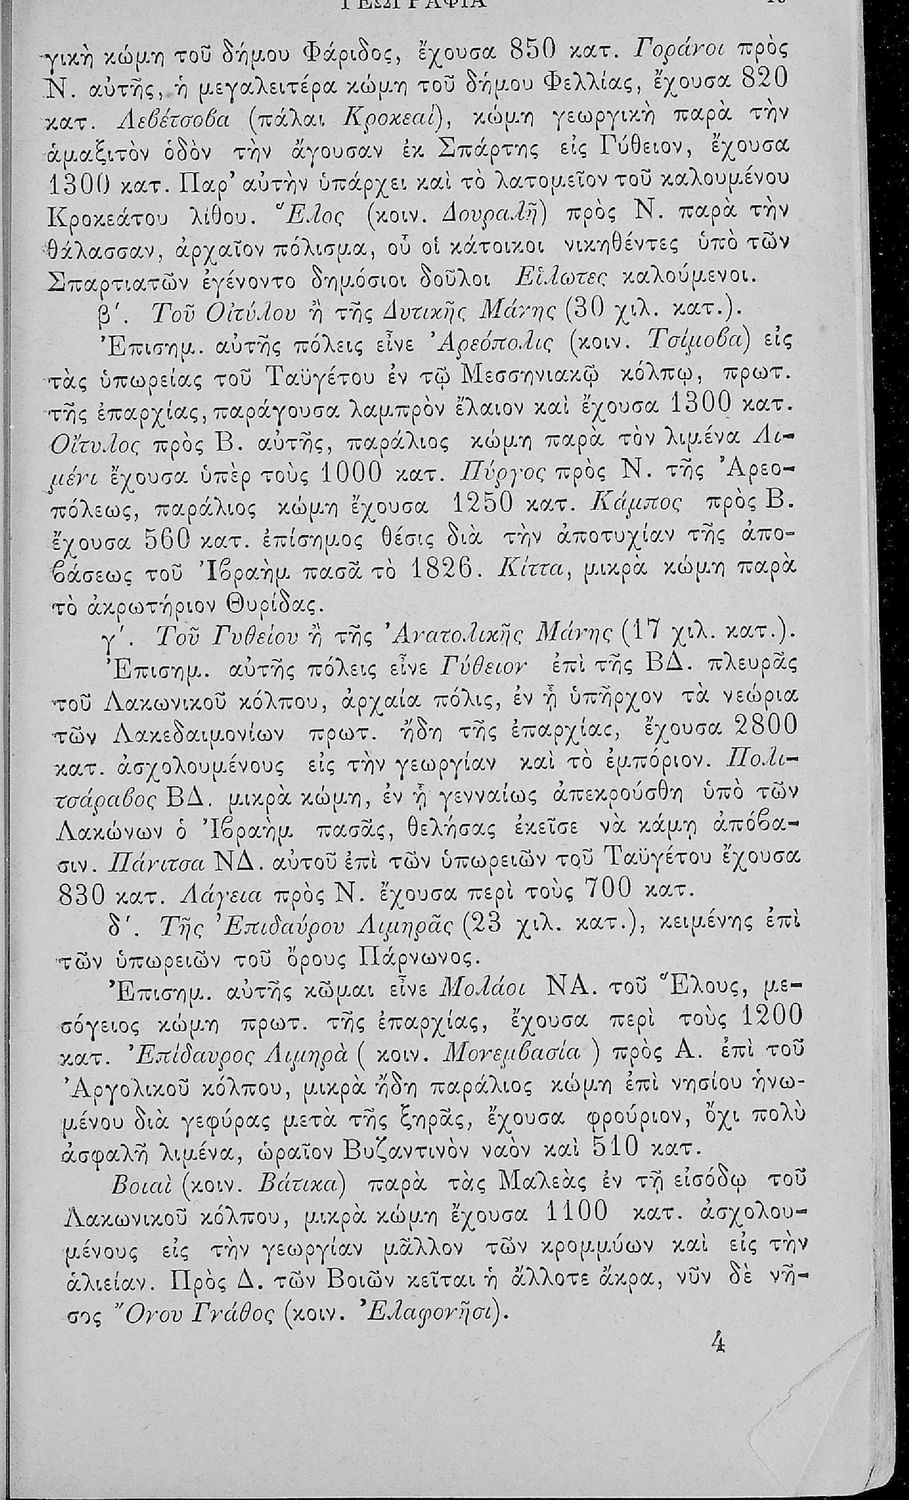 ΓΕΩΓΡΑΦΙΑ
γικὴ κώμη τοῦ δήμου Φάριδος, ἔχουσα 850 κατ. Γοράνοι πρὸς
Ν. αὐτῆς, ἡ μεγαλειτέρα κώμη τοῦ δήμου Φελλίας, ἔχουσα 820
κατ. Λεβέτσοβα (πάλαι Κροκεαί), κώμη γεωργικὴ παρὰ τὴν
ἁμαξιτὸν ὁδὸν τὴν ἄγουσαν ἐκ Σπάρτης εἰς Γύθειον, ἔχουσα
1300 κατ. Παρ’ αὐτὴν ὑπάρχει καὶ τὸ λατομεῖον τοῦ καλουμένου
Κροκεάτου λίθου. Ἕλος (κοιν. Δουραλῆ) πρὸς Ν. παρὰ τὴν
θάλασσαν, ἀρχαῖον πόλισμα, οὗ οἱ κάτοικοι νικηθέντες ὑπὸ τῶν
Σπαρτιατῶν ἐγένοντο δημόσιοι δοῦλοι Εἵλωτες καλούμενοι.
β΄. Τοῦ Οἰτύλου ἢ τῆς Δυτικῆς Μάνης (30 χιλ. κατ.).
Ἐπισημ. αὐτῆς πόλεις εἶνε Ἀρεόπολις (κοιν. Τσίμοβα) εἰς
τὰς ὑπωρείας τοῦ Ταϋγέτου ἐν τῷ Μεσσηνιακῷ κόλπῳ, πρωτ.
τῆς ἐπαρχίας, παράγουσα λαμπρὸν ἔλαιον καὶ ἔχουσα 1300 κατ.
Οἴτυλος πρὸς Β. αὐτῆς, παράλιος κώμη παρὰ τὸν λιμένα Λι-
μένι ἔχουσα ὑπὲρ τοὺς 1000 κατ. Πύργος πρὸς Ν. τῆς Ἀρεο-
πόλεως, παράλιος κώμη ἔχουσα 1250 κατ. Κάμπος πρὸς Β.
ἔχουσα 560 κατ. ἐπίσημος θέσις διὰ τὴν ἀποτυχίαν τῆς ἀπο-
βάσεως τοῦ Ἰβραὴμ πασᾶ τὸ 1826. Κίττα, μικρὰ κώμη παρὰ
τὸ ἀκρωτήριον Θυρίδας.
γ΄. Τοῦ Γυθείου ἢ τῆς Ἀνατολικῆς Μάνης (17 χιλ. κατ.).
Ἐπισημ. αὐτῆς πόλεις εἶνε Γύθειον ἐπὶ τῆς ΒΔ. πλευρᾶς
τοῦ Λακωνικοῦ κόλπου, ἀρχαία πόλις, ἐν ᾗ ὑπῆρχον τὰ νεώρια
τῶν Λακεδαιμονίων πρωτ. ἤδη τῆς ἐπαρχίας, ἔχουσα 2800
κατ. ἀσχολουμένους εἰς τὴν γεωργίαν καὶ τὸ ἐμπόριον. Πολι-
τσάραβος ΒΔ. μικρὰ κώμη, ἐν ᾗ γενναίως ἀπεκρούσθη ὑπὸ τῶν
Λακώνων ὁ Ἰβραὴμ πασᾶς, θελήσας ἐκεῖσε νὰ κάμῃ ἀπόβα-
σιν. Πάνιτσα ΝΔ. αὐτοῦ ἐπὶ τῶν ὑπωρειῶν τοῦ Ταϋγέτου ἔχουσα
830 κατ. Λάγεια πρὸς Ν. ἔχουσα περὶ τοὺς 700 κατ.
δ΄. Τῆς Ἐπιδαύρου Λιμηρᾶς (23 χιλ. κατ.), κειμένης ἐπὶ
τῶν ὑπωρειῶν τοῦ ὄρους Πάρνωνος.
Ἐπισημ. αὐτῆς κῶμαι εἶνε Μολάοι ΝΑ. τοῦ Ἕλους, με-
σόγειος κώμη πρωτ. τῆς ἐπαρχίας, ἔχουσα περὶ τοὺς 1200
κατ. Ἐπίδαυρος Λιμηρὰ ( κοιν. Μονεμβασία ) πρὸς Α. ἐπὶ τοῦ
Ἀργολικοῦ κόλπου, μικρὰ ἤδη παράλιος κώμη ἐπὶ νησίου ἡνω-
μένου διὰ γεφύρας μετὰ τῆς ξηρᾶς, ἔχουσα φρούριον, ὄχι πολὺ
ἀσφαλῆ λιμένα, ὡραῖον Βυζαντινὸν ναὸν καὶ 510 κατ.
Βοιαὶ (κοιν. Βάτικα) παρὰ τὰς Μαλεὰς ἐν τῇ εἰσόδῳ τοῦ
Λακωνικοῦ κόλπου, μικρὰ κώμη ἔχουσα 1100 κατ. ἀσχολου-
μένους εἰς τὴν γεωργίαν μᾶλλον τῶν κρομμύων καὶ εἰς τὴν
ἁλιείαν. Πρὸς Δ. τῶν Βοιῶν κεῖται ἡ ἄλλοτε ἄκρα, νῦν δὲ νῆ-
σος Ὄνου Γνάθος (κοιν. Ἐλαφονῆσι).
4